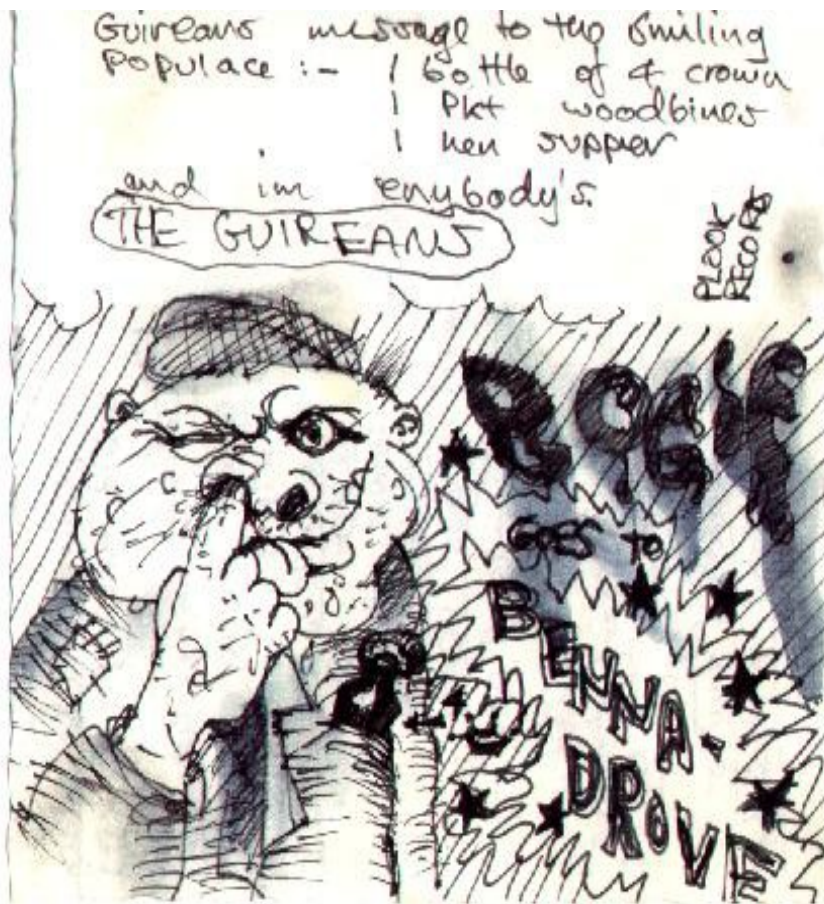 Guireans message to the Smiling
Populace :- 1 bottle of 4 crown
1 Pkt woodbines
1 hen supper
and im enybody's.
THE GUIREANS
PLOOK
RECORDS
GOES TO
BENNA-
DROVE